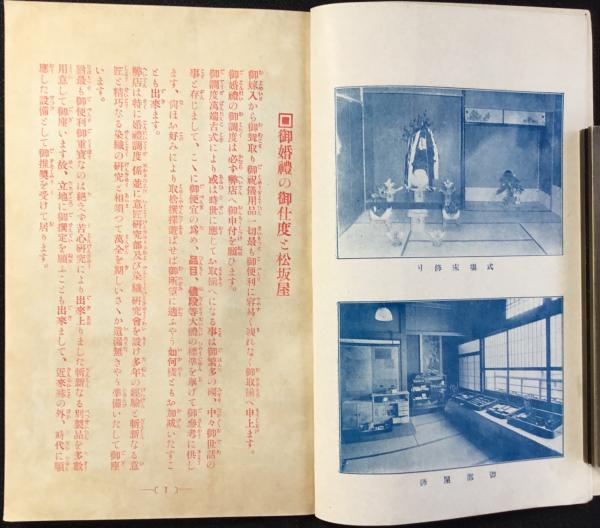 式場床飾り
御部屋飾
御婚禮の御仕度と松坂屋
御嫁入から御聟取り御祝儀用品一切最も御便利に容易く洩れなく御取揃へ申上ます。
御婚禮の御調度は必ず弊店へ御申付を願ひます。
御調度萬端古式により或は時世に應じてお取揃へになる事は御繁多の砌、中々御世話の
事と存じまして、こゝに御便宜の爲め、品目、値段等大體の標準を擧げて御參考に供し
ます、尙ほお好みにより取捨撰擇遊ばせば御所望に適ふやう如何樣ともお加減いたすこ
とも出來ます。
弊店は特に婚禮調度係並に意匠研究部及び染織研究會を設け多年の經驗と斬新なる意
匠と精巧なる染織の研究と相須つて萬全を期しいさゝか遺漏無きやう準備いたして御座
います。
猶最も御便利御重寶なのは絕えず苦心研究により出來上りました斬新なる別製品を多數
用意して御座います故、立地に御撰定を願ふことも出來まして、近來殊の外、時代に順
應した設備として御推奬を受けて居ります。
(1)